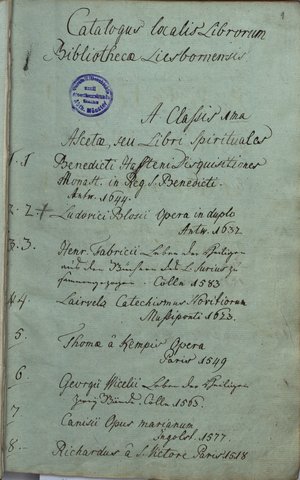 1
Catalogus localis Librorum
Bibliothecæ Liesbornensis
A Classis 1ma
Ascetæ, seu Libri Spirituales
1. 1 Benedicti Hafteni Disquisitiones
Monast. in Reg. S. Benedicti.
Antw. 1644.
2. 2. † Ludovici Blosii Opera in duplo
Antw. 1632.
3. 3. Henr. Fabricii Leben der Heiligen
aus den Büchern des L. Surius
Cölln 1583
4. Lairvelz Catechismus Novitiorum
Mussiponti 1623.
5. Thomæ â Kempis Opera
Paris 1549
6 Georgii Wicelii Leben der Heiligen
zwey Bände Cölln
7 Canisii Opus marianum
Ingolst. 1577.
8. Richardus â S. Victore Paris 1518